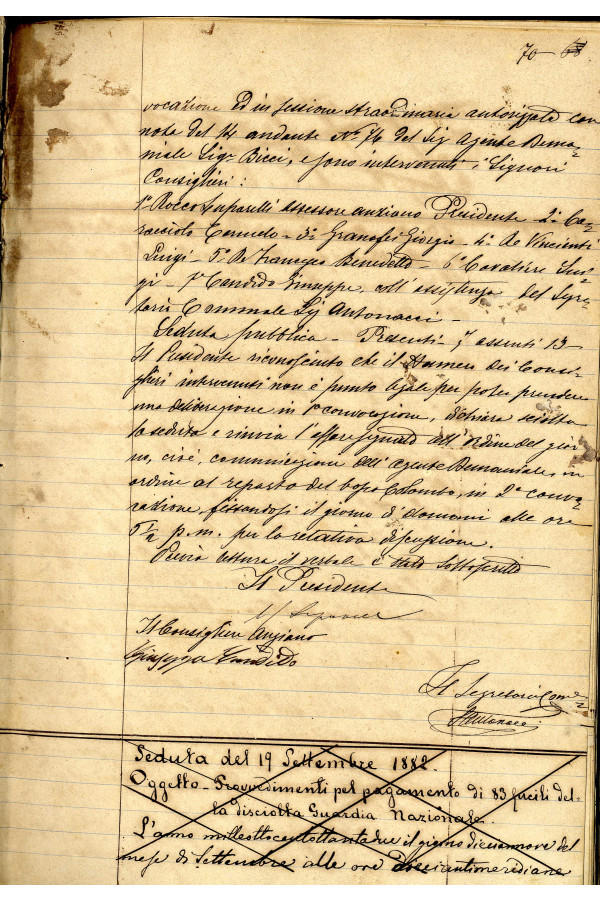 70 - 68
vocazione ed in sessione straordinaria autorizzata con
nota del 14 andante Nº 76 del Sig Agente Dema-
niale Sigr Bicci, e sono intervenuti i Signori
Consiglieri:
1º Rocco assessore anziano Presidente - 2º Ca-
racciolo Carmelo - 3º Granafei Giorgio - 4º De Vincenti
Luigi - 5º De Francesco Benedetto - 6º Cavaliere Lui-
gi - 7º Candido Giuseppe, coll'assistenza del Segre-
tario Comunale Sig Antonacci -
Seduta pubblica - Presenti 7 assenti 13 -
Il Presidente riconosciuto che il numero dei Consi-
glieri intervenuti non è punto legale per poter prendere
una deliberazione in 1ª convocazione, dichiara sciolta
la seduta e rinvia l'affare segnato all'ordine del gior-
no, cioè, comunicazione dell'agente Demaniale, in
ordine al reparto del bosco Colombo, in 2ª convo-
cazione, fissandosi il giorno di domani alle ore
5 1/2 p.m. per la relativa discussione.
Previa lettura il verbale è stato sottoscritto
Il Presidente
Il Consigliere Anziano
Giuseppe Candido
Il Segretario Come
Antonacci
Seduta del 19 Settembre 1882.
Oggetto - Provvedimenti pel pagamento di 83 fucili del-
la disciolta Guardia Nazionale.
L'anno milleottocentottantadue il giorno diciannove del
mese di Settembre alle ore dieci antimeridiane